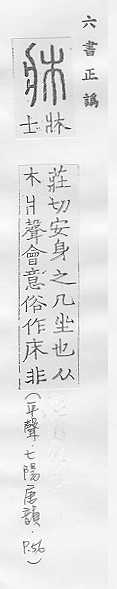 六書正譌
牀
牀士
莊切安身之几坐也从
木爿聲會意俗作床非
(平聲·七陽唐韻·P.56)